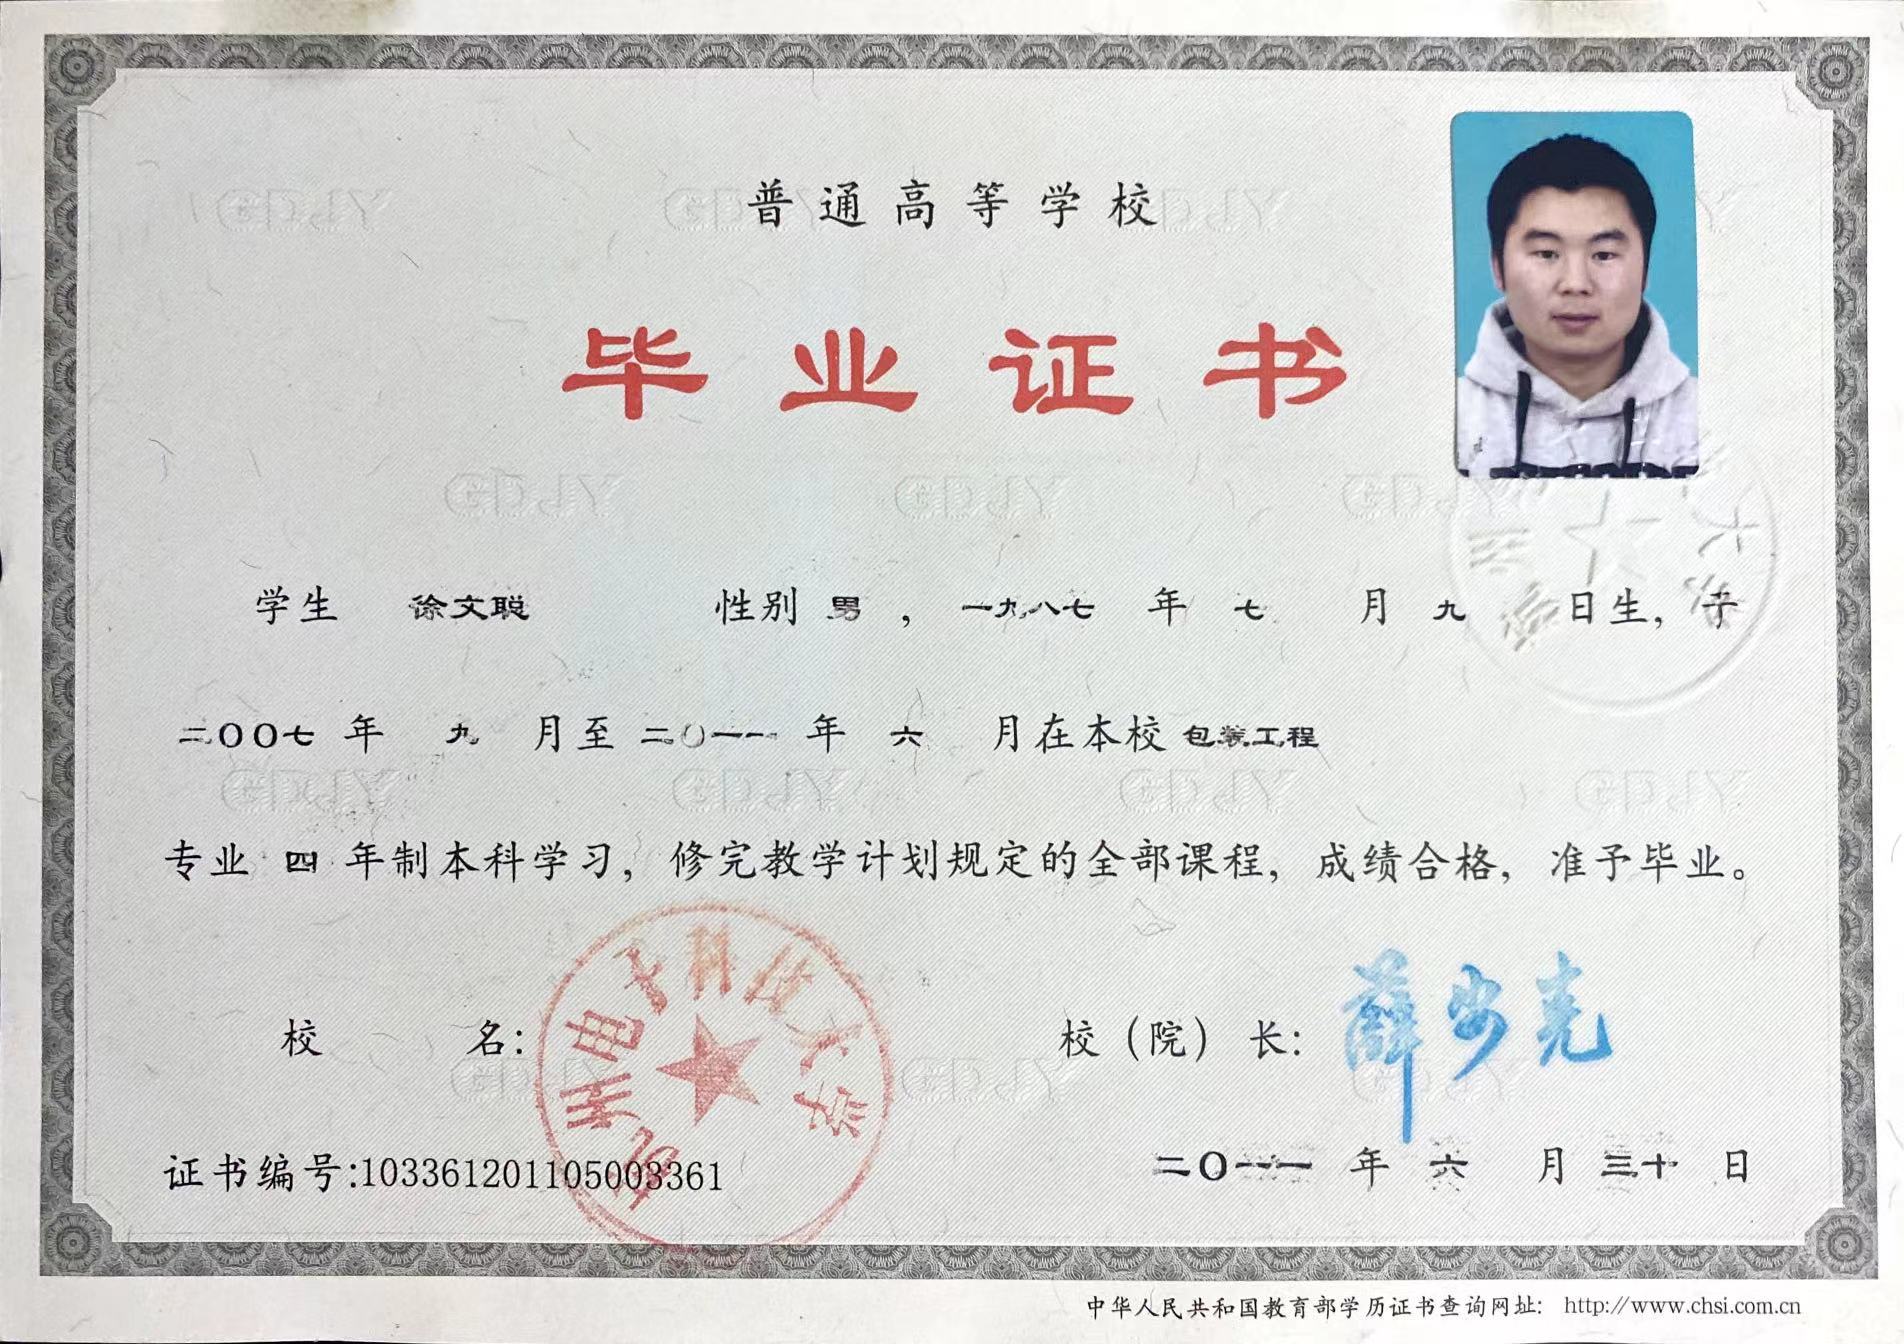 普通高等学校
毕业证书
学生 徐文聪 性别 男，一九八七 年 七 月 九 日生，于
二〇〇七 年 九 月至 二〇一一 年 六 月在本校 包装工程
专业 四 年制本科学习，修完教学计划规定的全部课程，成绩合格，准予毕业。
校 名： 杭州电子科技大学 校（院）长： 薛安克
证书编号:103361201105003361 二〇一一 年 六 月 三十 日
中华人民共和国教育部学历证书查询网址： http://www.chsi.com.cn
GDJY